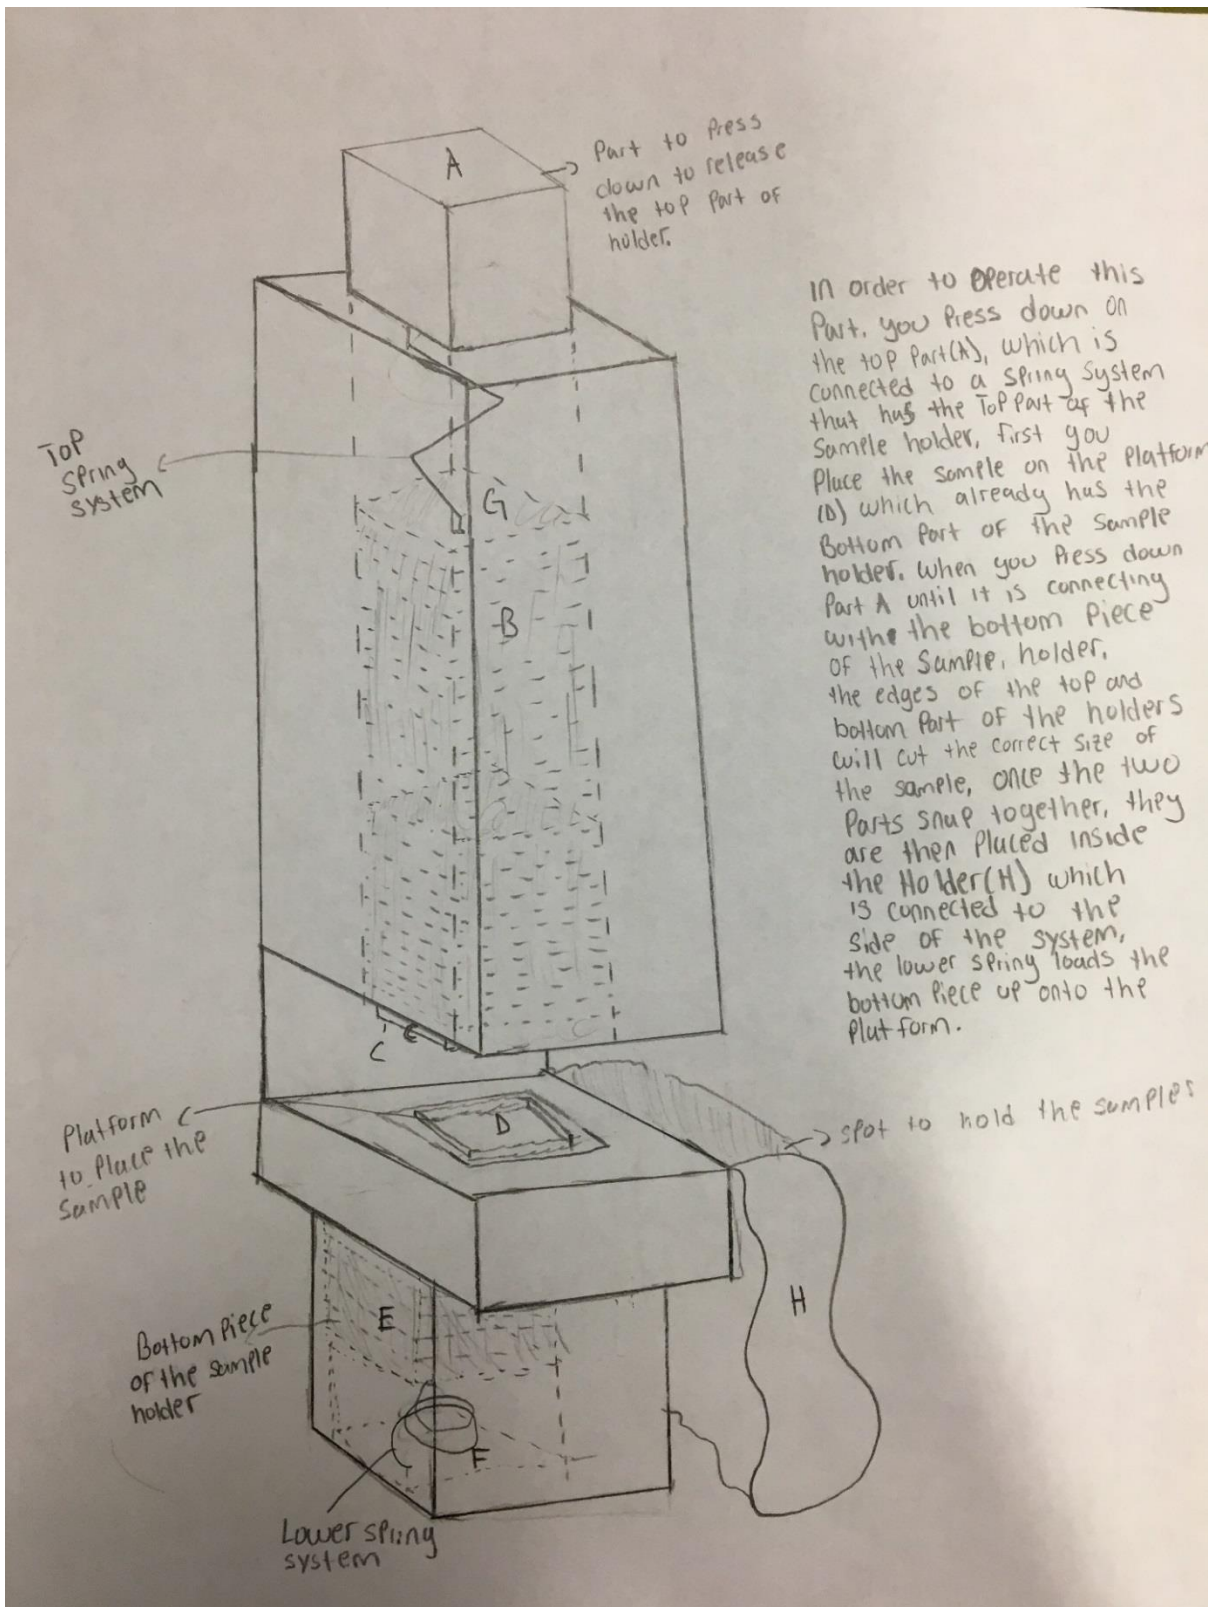 A
Part to Press
down to release
the top part of
holder.
In order to operate this
Part, you Press down on
the top Part(A), which is
connected to a spring system
that has the Top Part of the
Sample holder, first you
Place the sample on the Platform
(D) which already has the
Bottom Part of the Sample
holder. When you Press down
Part A until it is connecting
withe the bottom Piece
of the Sample, holder,
the edges of the top and
bottom Part of the holders
will cut the correct size of
the sample, once the two
Parts snap together, they
are then Placed inside
the Holder(H) which
is connected to the
side of the system,
the lower spring loads the
bottom Piece up onto the
Platform.
Top
spring
system
G
B
C
D
Platform
to Place the
Sample
spot to hold the samples
E
H
Bottom Piece
of the sample
holder
F
Lower spring
system